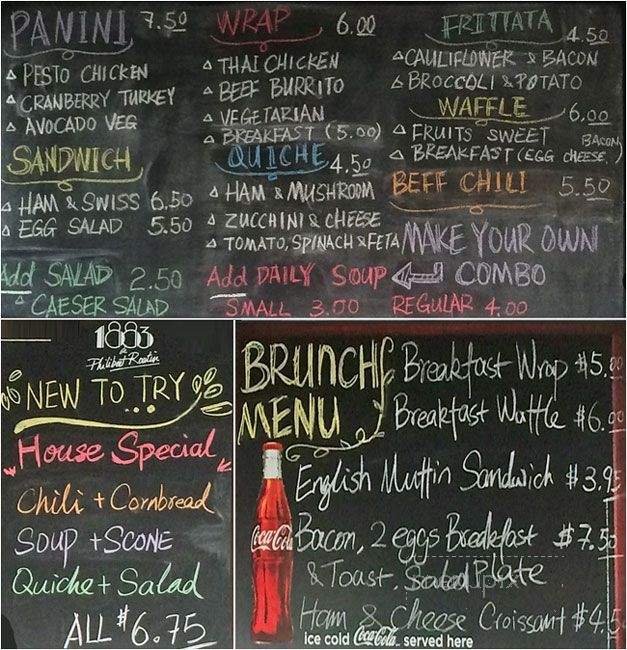 PANINI 7.50
△ PESTO CHICKEN
△ CRANBERRY TURKEY
△ AVOCADO VEG
SANDWICH
△ HAM & SWISS 6.50
△ EGG SALAD 5.50
Add SALAD 2.50
△ CAESER SALAD
WRAP 6.00
△ THAI CHICKEN
△ BEEF BURRITO
△ VEGETARIAN
△ BREAKFAST (5.00)
QUICHE 4.50
△ HAM & MUSHROOM
△ ZUCCHINI & CHEESE
△ TOMATO, SPINACH & FETA
Add DAILY SOUP
SMALL 3.00
FRITTATA 4.50
△ CAULIFLOWER & BACON
△ BROCCOLI & POTATO
WAFFLE 6.00
△ FRUITS SWEET
△ BREAKFAST (EGG CHEESE, BACON)
BEFF CHILI 5.50
MAKE YOUR OWN
COMBO
REGULAR 4.00
1883
Philibert Routin
NEW TO TRY
...
House Special
Chili + Cornbread
SOUP + SCONE
Quiche + Salad
ALL $6.75
BRUNCH
MENU
Breakfast Wrap $5.00
Breakfast Waffle $6.00
English Muffin Sandwich $3.95
Bacon, 2 eggs Breakfast $7.50
& Toast, Salad Plate
Ham & Cheese Croissant $4.5
Coca-Cola
ice cold Coca-Cola served here